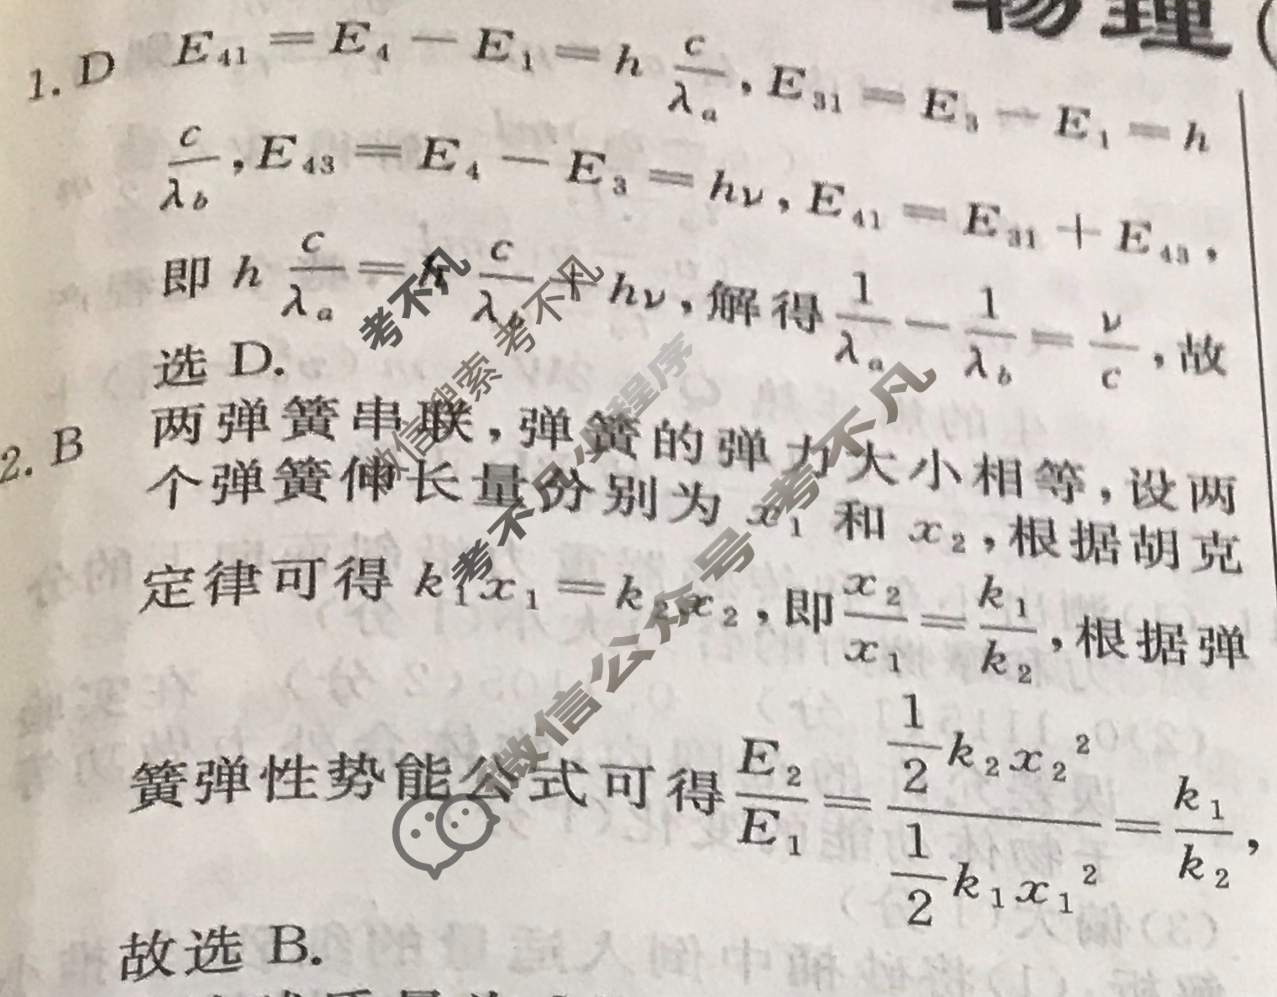 物理
1. D E₄₁ = E₄ − E₁ = h c/λₐ, E₃₁ = E₃ − E₁ = h
c/λ_b, E₄₃ = E₄ − E₃ = hν, E₄₁ = E₃₁ + E₄₃,
即 h c/λₐ = h c/λ_b + hν, 解得 1/λₐ − 1/λ_b = ν/c, 故
选 D.
2. B 两弹簧串联, 弹簧的弹力大小相等, 设两
个弹簧伸长量分别为 x₁ 和 x₂, 根据胡克
定律可得 k₁x₁ = k₂x₂, 即 x₂/x₁ = k₁/k₂, 根据弹
簧弹性势能公式可得 E₂/E₁ = (1/2 k₂x₂²)/(1/2 k₁x₁²) = k₁/k₂,
故选 B.
考不凡
微信搜索 考不凡
考不凡小程序
微信公众号 考不凡